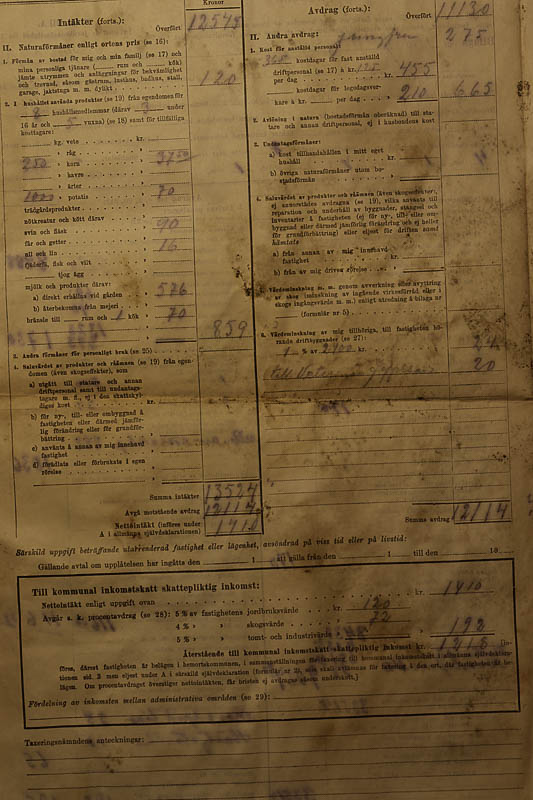 Intäkter (forts.):
Kronor
Överfört
12545
II. Naturaförmåner enligt ortens pris (se 16):
1. Förmån av bostad för mig och min familj (se 17) och
mina personliga tjänare ( rum och kök)
jämte utrymmen och anläggningar för bekvämlighet
och trevnad, såsom gästrum, lusthus, badhus, stall,
garage, jaktstuga m. m. dylikt
120
2. I hushållet använda produkter (se 19) från egendomen för
8 hushållsmedlemmar (därav 3 under
16 år och 5 vuxna) (se 18) samt för tillfälliga
kosttagare:
kg. vete kr.
» råg »
250 » korn » 37.50
» havre »
» ärter »
1000 » potatis » 70
trädgårdsprodukter »
nötkreatur och kött därav »
svin och fläsk » 90
får och getter » 16
ull och lin »
fjäderfä, fisk och vilt »
tjog ägg »
mjölk och produkter därav:
a) direkt erhållna vid gården » 576
b) återbekomna från mejeri »
bränsle till rum och 1 kök » 70
859
3. Andra förmåner för personligt bruk (se 25)
4. Saluvärdet av produkter och råämnen (se 19) från egen-
domen (även skogseffekter), som
a) utgått till statare och annan
driftpersonal samt till undantags-
tagare m. fl., ej i den skattskyl-
diges kost kr.
b) för ny-, till- eller ombyggnad å
fastigheten eller därmed jämför-
lig förändring eller för grundför-
bättring »
c) använts å annan av mig innehavd
fastighet »
d) förädlats eller förbrukats i egen
rörelse »
Summa intäkter 13524
Avgå motstående avdrag 12114
Nettointäkt (införes under
A i allmänna självdeklarationen) 1410
Avdrag (forts.):
Överfört
11130
II. Andra avdrag:
275
1. Kost för anställd personal:
365 kostdagar för fast anställd
driftpersonal (se 17) à kr. 1.25
per dag kr. 455
kostdagar för legodagsver-
kare à kr. per dag » 210
665
2. Avlöning i natura (bostadsförmån oberäknad) till sta-
tare och annan driftpersonal, ej i husbondens kost
3. Undantagsförmåner:
a) kost tillhandahållen i mitt eget
hushåll kr.
b) övriga naturaförmåner utom bo-
stadsförmån »
4. Saluvärdet av produkter och råämnen (även skogseffekter),
ej annorstädes avdragna (se 19), vilka använts till
reparation och underhåll av byggnader, stängsel och
inventarier å fastigheten (ej för ny-, till- eller om-
byggnad eller därmed jämförlig förändring och ej heller
för grundförbättring) eller eljest för driften samt
hämtats
a) från annan av mig innehavd
fastighet kr.
b) från av mig driven rörelse »
5. Värdeminskning m. m. genom avverkning eller avyttring
av skog (minskning av ingående virkesförråd eller i
skogs ingångsvärde m. m.) enligt utredning å bilaga nr
(formulär nr 5)
6. Värdeminskning av mig tillhöriga, till fastigheten hö-
rande driftbyggnader (se 27):
1 % av 2400 kr.
24
20
Summa avdrag 12114
Särskild uppgift beträffande utarrenderad fastighet eller lägenhet, avsöndrad på viss tid eller på livstid:
Gällande avtal om upplåtelsen har ingåtts den 1 att gälla från den 1 till den 19
Till kommunal inkomstskatt skattepliktig inkomst:
Nettointäkt enligt uppgift ovan kr. 1410
Avgår s. k. procentavdrag (se 28): 5 % av fastighetens jordbruksvärde kr. 120
4 % » » skogsvärde » 72
5 % » » tomt- och industrivärde » 192
Återstående till kommunal inkomstskatt skattepliktig inkomst kr. 1218 (In-
föres, därest fastigheten är belägen i hemortskommunen, i sammanställningen för taxering till kommunal inkomstskatt i allmänna självdeklara-
tionen sid. 3 men eljest under A i särskild självdeklaration (formulär nr 2), som skall avlämnas för taxering i den ort, där fastigheten är be-
lägen. Om procentavdraget överstiger nettointäkten, får bristen ej avdragas såsom underskott.)
Fördelning av inkomsten mellan administrativa områden (se 29):
Taxeringsnämndens anteckningar: